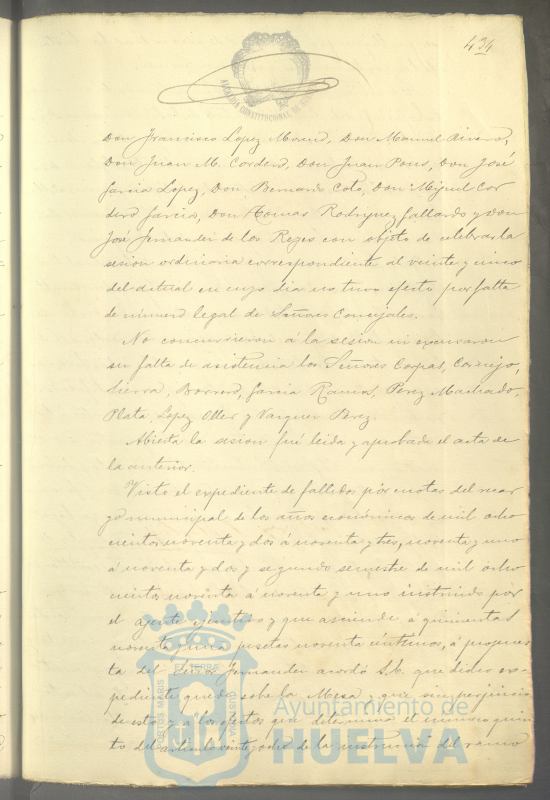 434
ALCALDIA CONSTITUCIONAL DE
Don Francisco Lopez Moreno, Don Manuel Rivero,
Don Juan M. Cordero, Don Juan Pons, Don José
Garcia Lopez, Don Bernardo Coto, Don Miguel Cor
dero Garcia, Don Tomas Rodriguez Gallardo y Don
José Fernandez de los Reyes con objeto de celebrar la
sesion ordinaria correspondiente al veinte y cinco
del actual en cuyo dia no tuvo efecto por falta
de número legal de Señores Concejales.
No concurrieron á la sesion ni excusaron
su falta de asistencia los Señores Carpas, Cornejo,
Sierra, Borrero, Garcia Ramos, Perez Machado,
Plata, Lopez Oller y Vazquez Perez.
Abierta la sesion fué leida y aprobada el acta de
la anterior.
Visto el expediente de fallidos por cuotas del recar
go municipal de los años económicos de mil ocho
cientos noventa y dos á noventa y tres, noventa y uno
á noventa y dos y segundo semestre de mil ocho
cientos noventa á noventa y uno instruido por
el agente ejecutivo y que asciende á quinientas
noventa y una pesetas noventa céntimos, á propues
ta del Señor Fernandez acordó S.E. que dicho ex
pediente quede sobre la Mesa y que sin perjuicio
de esto y a los efectos que determina el número quin
to del articulo veinte y dos de la instruccion del ramo
PORTUS MARIS ET TERRÆ CUSTODIA
Ayuntamiento de
HUELVA